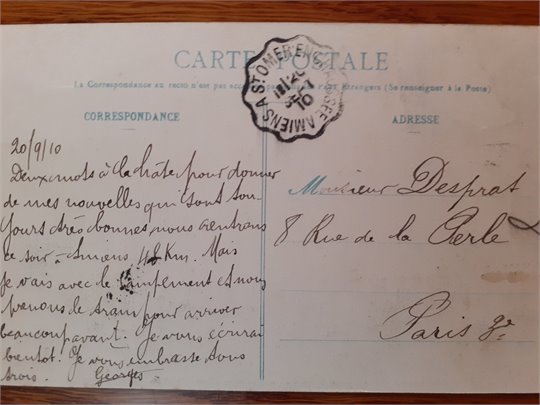 CARTE POSTALE
La Correspondance au recto n'est pas acceptée par tous les pays étrangers (Se renseigner à la Poste)
CORRESPONDANCE
ADRESSE
AMIENS A ST OMER EN CHAUSSEE
20/9/10
Deux mots à la hâte pour donner
de mes nouvelles qui sont tou-
jours très bonnes nous rentrons
ce soir à Amiens 48 Km. Mais
je vais avec le campement et nous
prenons le train pour arriver
beaucoup avant. Je vous écrirai
bientôt. Je vous embrasse tous
trois. Georges
Monsieur Desprat
8 Rue de la Perle
Paris 3e